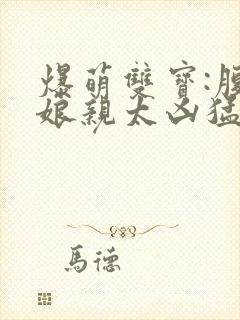 爆萌雙寶:腹
娘親太凶猛
馬德